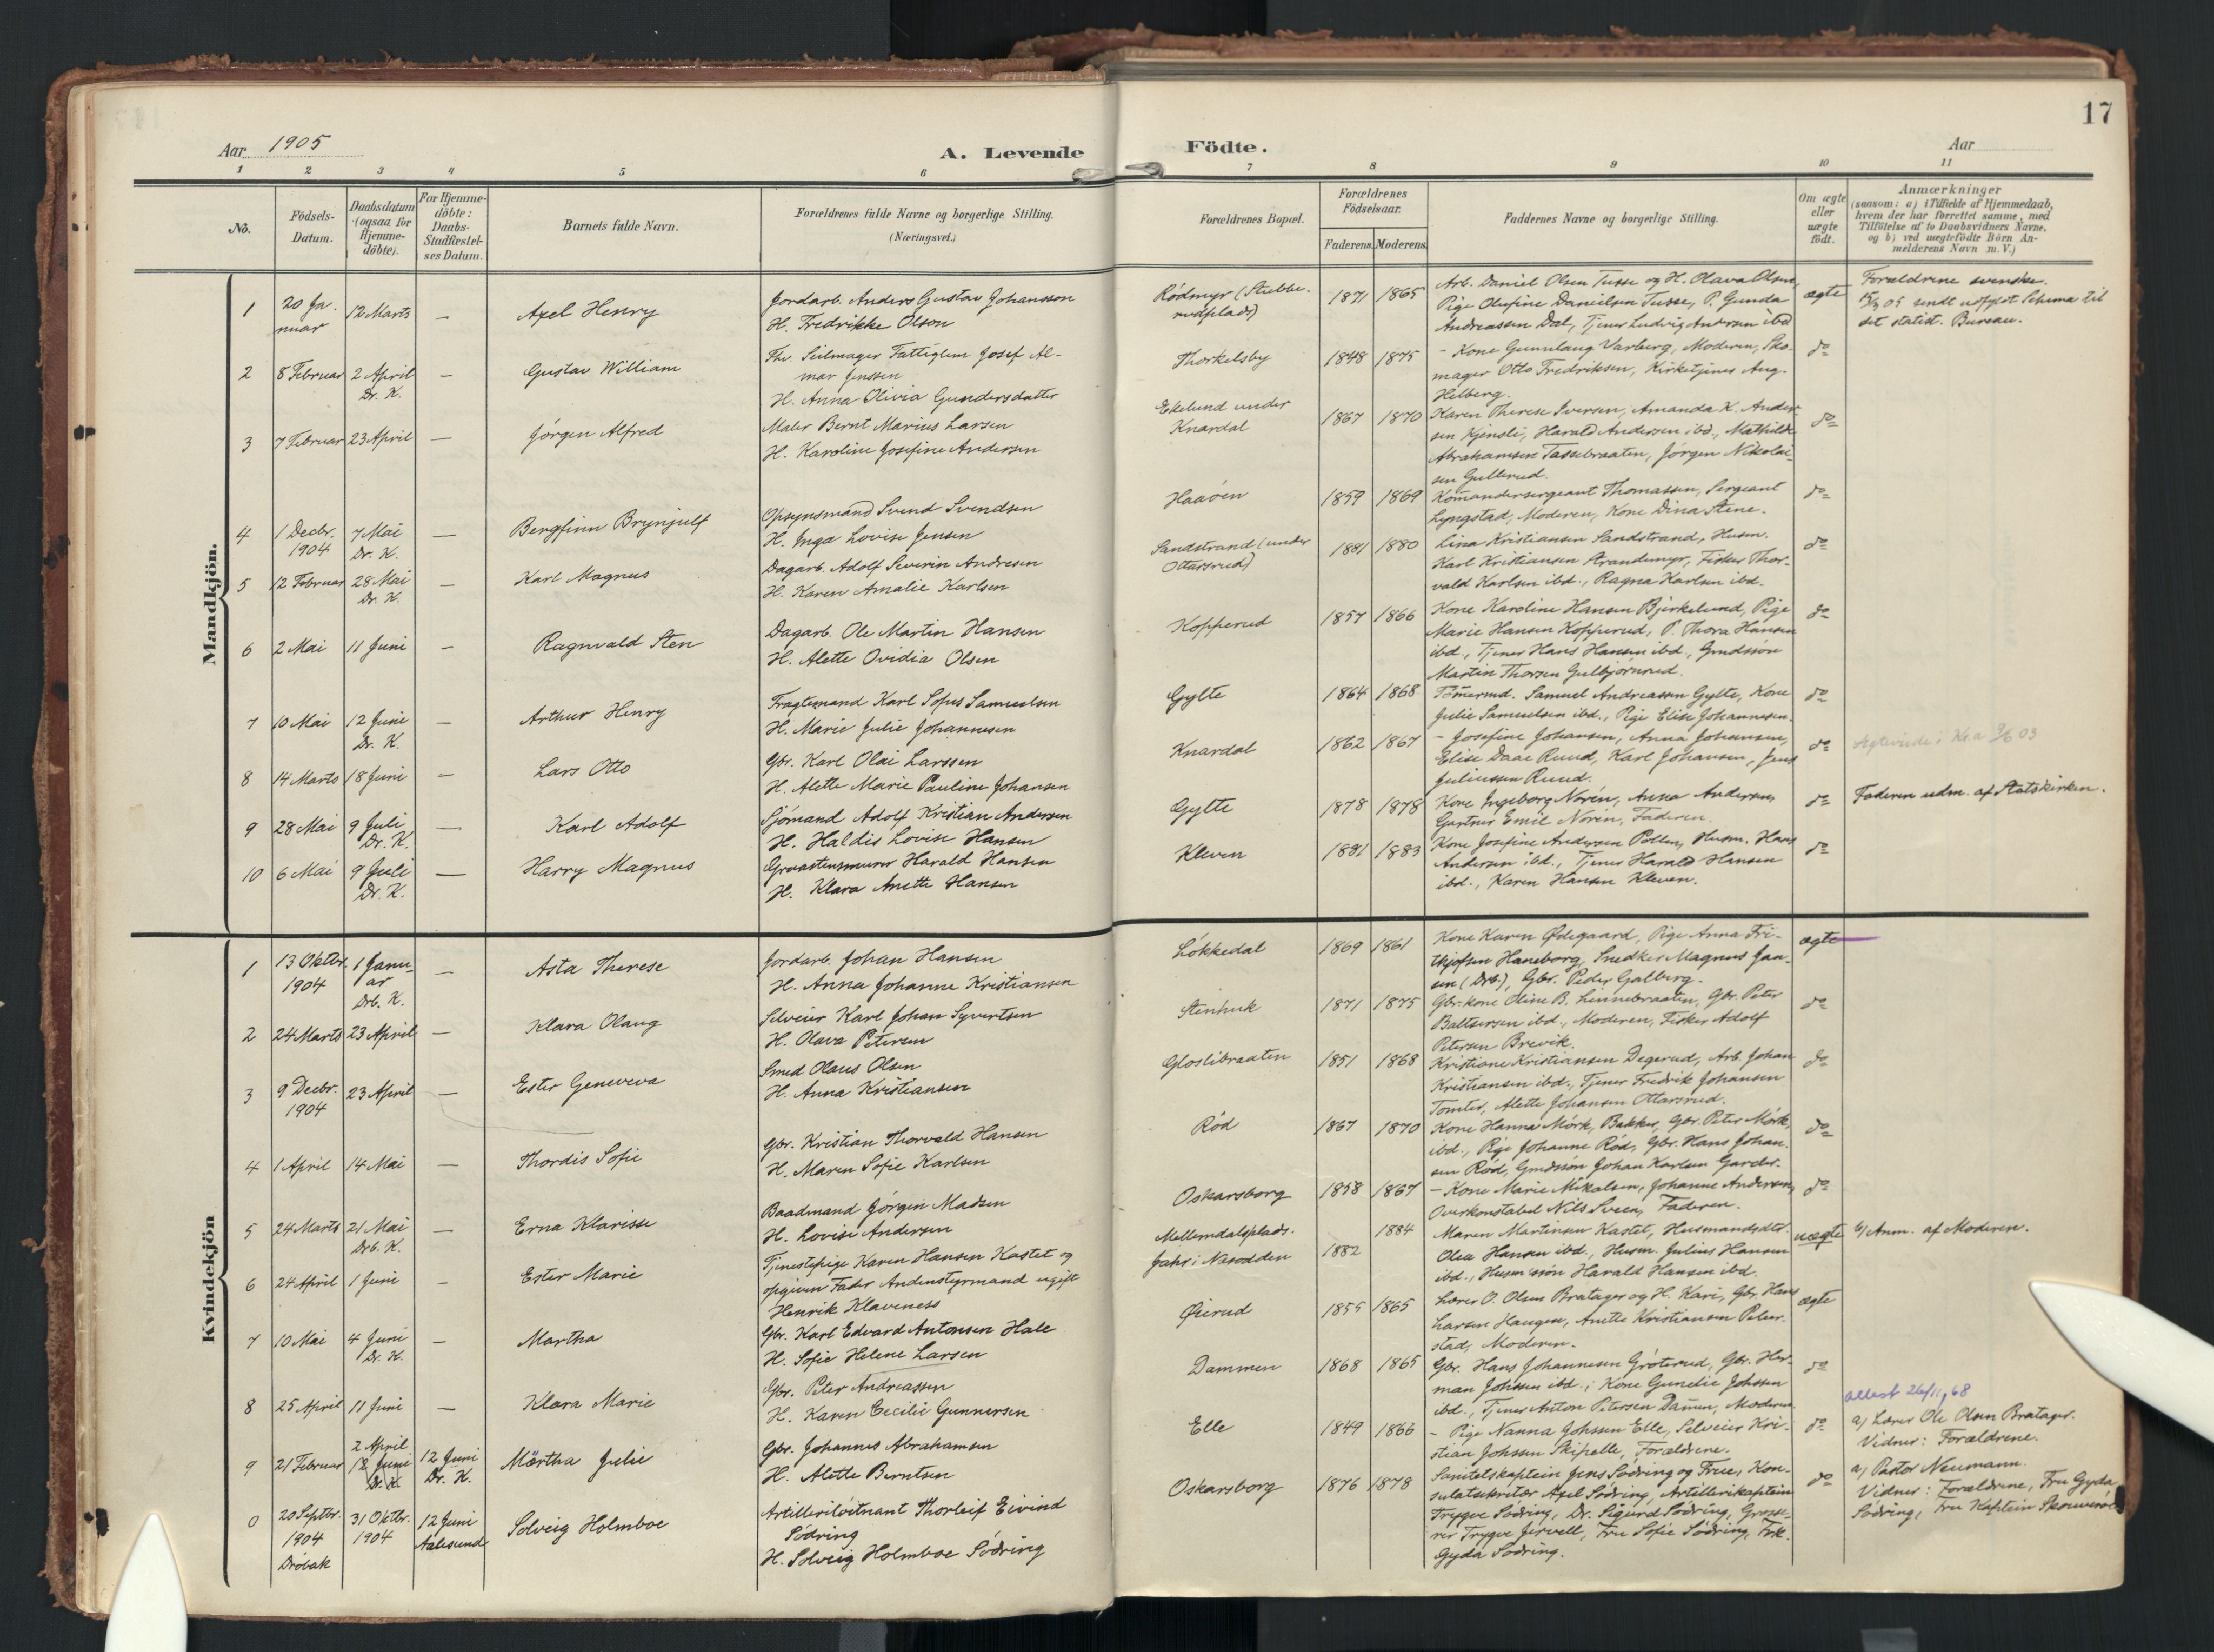 17
Aar 1905
A. Levende Födte.
Aar
1 2 3 4 5 6 7 8 9 10 11
No.
Födsels-Datum.
Daabsdatum (ogsaa for Hjemme-döbte).
For Hjemme-döbte: Daabs-Stadfæstel-ses Datum.
Barnets fulde Navn.
Forældrenes fulde Navne og borgerlige Stilling.
(Næringsvei.)
Forældrenes Bopæl.
Forældrenes Födselsaar.
Faderens. Moderens.
Faddernes Navne og borgerlige Stilling.
Om ægte eller uægte födt.
Anmærkninger
(saasom: a) i Tilfælde af Hjemmedaab, hvem der har forrettet samme, med Tilföielse af to Daabsvidners Navne. og b) ved uægtefödte Börn An-melderens Navn m. V.)
Mandkjön.
1 20 Ja-nuar 12 Marts — Axel Henry
Jordarb. Anders Gustav Johansson
H. Fredrikke Olson
Rödmyr (Stubbe-rudplads) 1871 1865
Arb. Daniel Olsen Tusse og H. Olava Olsen,
Pige Olufine Danielsen Tusse, P. Gunda
Andreassen Dal, Tjener Ludvig Andersen ibd
ægte
Forældrene svenske.
05 sendt udfyldt Schema til
det statist. Bureau.
2 8 Februar 2 April Dr. K. — Gustav William
Fhv. Seilmager Fattiglem Josef Al-
mar Jenssen
H. Anna Olivia Gundersdatter
Thorkelsby 1848 1875
- Kone Gunnlaug Varberg, Moderen, Sko-
mager Otto Fredriksen, Kirketjener Aug.
Helberg.
do
3 7 Februar 23 April — Jörgen Alfred
Maler Bernt Marius Larsen
H. Karoline Josefine Andersen
Ekelund under Knardal 1867 1870
Karen Therese Iversen, Amanda K. Ander-
sen Kjensli, Harald Andersen ibd., Mathilde
Abrahamsen Tassebraaten, Jörgen Nikolai-
sen Gullerud.
do
4 1 Decbr. 1904 7 Mai Dr. K. — Bergfinn Brynjulf
Opsynsmand Svend Svendsen
H. Inga Lovise Jensen
Haaöen 1859 1869
Komandersergeant Thomassen, Sergeant
Lyngstad, Moderen, Kone Dina Stene.
do
5 12 Februar 28 Mai Dr. K. — Karl Magnus
Dagarb. Adolf Severin Andresen
H. Karen Amalie Karlsen
Sandstrand (under Ottarsrud) 1881 1880
Lina Kristiansen Sandstrand, Husm.
Karl Kristiansen Strandemyr, Fisker Thor-
vald Karlsen ibd., Ragna Karlsen ibd.
do
6 2 Mai 11 Juni — Ragnvald Sten
Dagarb. Ole Martin Hansen
H. Alette Ovidia Olsen
Kopperud 1857 1866
Kone Karoline Hansen Bjerkelund, Pige
Marie Hansen Kopperud, P. Thora Hansen
ibd., Tjener Hans Hansen ibd., Grndssön
Martin Thorsen Gulbjörnrud.
do
7 10 Mai 12 Juni Dr. K. — Arthur Henry
Fragtemand Karl Sofus Samuelsen
H. Marie Julie Johannesen
Gylte 1864 1868
Tömermd. Samuel Andreassen Gylte, Kone
Julie Samuelsen ibd., Pige Elise Johannesen.
do
8 14 Marts 18 Juni — Lars Otto
Gbr. Karl Olai Larssen
H. Alette Marie Pauline Johansen
Knardal 1862 1867
- Josefine Johansen, Anna Johansen,
Elise Daae Ruud, Karl Johansen, Jens
Juliussen Ruud.
do
9 28 Mai 9 Juli Dr. K. — Karl Adolf
Sjömand Adolf Kristian Andersen
H. Haldis Lovise Hansen
Gylte 1878 1878
Kone Ingeborg Norén, Anna Andersen,
Gartner Emil Noren, Faderen.
do
Faderen udm. af Statskirken.
10 6 Mai 9 Juli Dr. K. — Harry Magnus
Graastensmurer Harald Hansen
H. Klara Anette Hansen
Kleven 1881 1883
Kone Josefine Andersen Pollen, Husm. Hans
Andersen ibd., Tjener Harald Hansen
ibd., Karen Hansen Kleven.
do
Kvindekjön
1 13 Oktbr. 1904 1 Janu-ar Drb. K. — Asta Therese
Jordarb. Johan Hansen
H. Anna Johanne Kristiansen
Lökkedal 1869 1861
Kone Karen Ødegaard, Pige Anna Fri-
tkjofsen Haneborg, Snedker Magnus Jan-
sen (Drb), Gbr. Peder Galberg.
ægte
2 24 Marts 23 April — Klara Olaug
Selveier Karl Johan Syvertsen
H. Olava Petersen
Stenhuk 1871 1875
Gbr.kone Oline B. Linnebraaten, Gbr. Peter
Baltsersen ibd., Moderen, Fisker Adolf
Petersen Brevik.
do
3 9 Decbr. 1904 23 April — Ester Geneveva
Smed Olaus Olsen
H. Anna Kristiansen
Gloslibraaten 1851 1868
Kristiane Kristiansen Degerud, Arb. Johan
Kristiansen ibd., Tjener Fredrik Johansen
Tomter, Alette Johansen Ottarsrud.
do
4 1 April 14 Mai — Thordis Sofie
Gbr. Kristian Thorvald Hansen
H. Maren Sofie Karlsen
Röd 1867 1870
Kone Hanna Mörk, Bakker, Gbr. Peter Mörk,
ibd., Pige Johanne Röd, Gbr. Hans Johan-
sen Röd, Grndssön Johan Karlsen Garder.
do
5 24 Marts 21 Mai Drb. K. — Erna Klarisse
Baadmand Jörgen Madsen
H. Lovise Andersen
Oskarsborg 1858 1867
- Kone Marie Mikalsen, Johanne Andersen,
Overkonstabel Nils Sveen, Faderen.
do
6 24 April 1 Juni — Ester Marie
Tjenestepige Karen Hansen Kastet og
opgiven Fader Andenstyrmand ugift
Henrik Klaveness
Mellemdalsplads. 1884
Jahr i Nesodden 1882
Maren Martinsen Kastet, Husmandsdtr.
Olea Hansen ibd., Husm. Julius Hansen
ibd., Husm.sön Harald Hansen ibd.
uægte
b) Anm. af Moderen.
7 10 Mai 4 Juni Dr. K. — Martha
Gbr. Karl Edvard Antonsen Hale
H. Sofie Helene Larsen
Øierud 1855 1865
Lærer O. Olsen Bratager og H. Kari, Gbr. Hans
Larsen Haugen, Anette Kristiansen Peder-
stad, Moderen.
ægte
8 25 April 11 Juni — Klara Marie
Gbr. Peter Andreassen
H. Karen Cecilie Gunnersen
Dammen 1868 1865
Gbr. Hans Johannesen Gröterud, Gbr. Her-
man Johssen ibd.; Kone Gunelie Johssen
ibd., Tjener Anton Petersen Damen, Moderen
do
9 21 Februar 2 April 12 Juni Dr. K. 12 Juni Dr. K. Märtha Julie
Gbr. Johannes Abrahamsen
H. Alette Berntsen
Elle 1849 1866
- Pige Nanna Johssen Elle, Selveier Kri-
stian Johssen Skipelle, Forældrene.
do
attest 26/11 68
a) Lærer Ole Olsen Bratager.
Vidner: Forældrene.
0 20 Septbr. 1904 Dröbak 31 Oktbr. 1904 12 Juni Aalesund Solveig Holmboe
Artillerilöitnant Thorleif Eivind
Södring
H. Solveig Holmboe Södring
Oskarsborg 1876 1878
Sanitetskaptein Jens Södring og Frue, Kon-
sulatsekretær Axel Södring, Artillerikaptein
Trygve Södring, Dr. Sigurd Södring, Grosse-
rer Trygve Jervell, Fru Sofie Södring, Frk.
Gyda Södring.
do
a) Pastor Neumann.
Vidner: Forældrene, Fru Gyda
Södring, Fru Kaptein